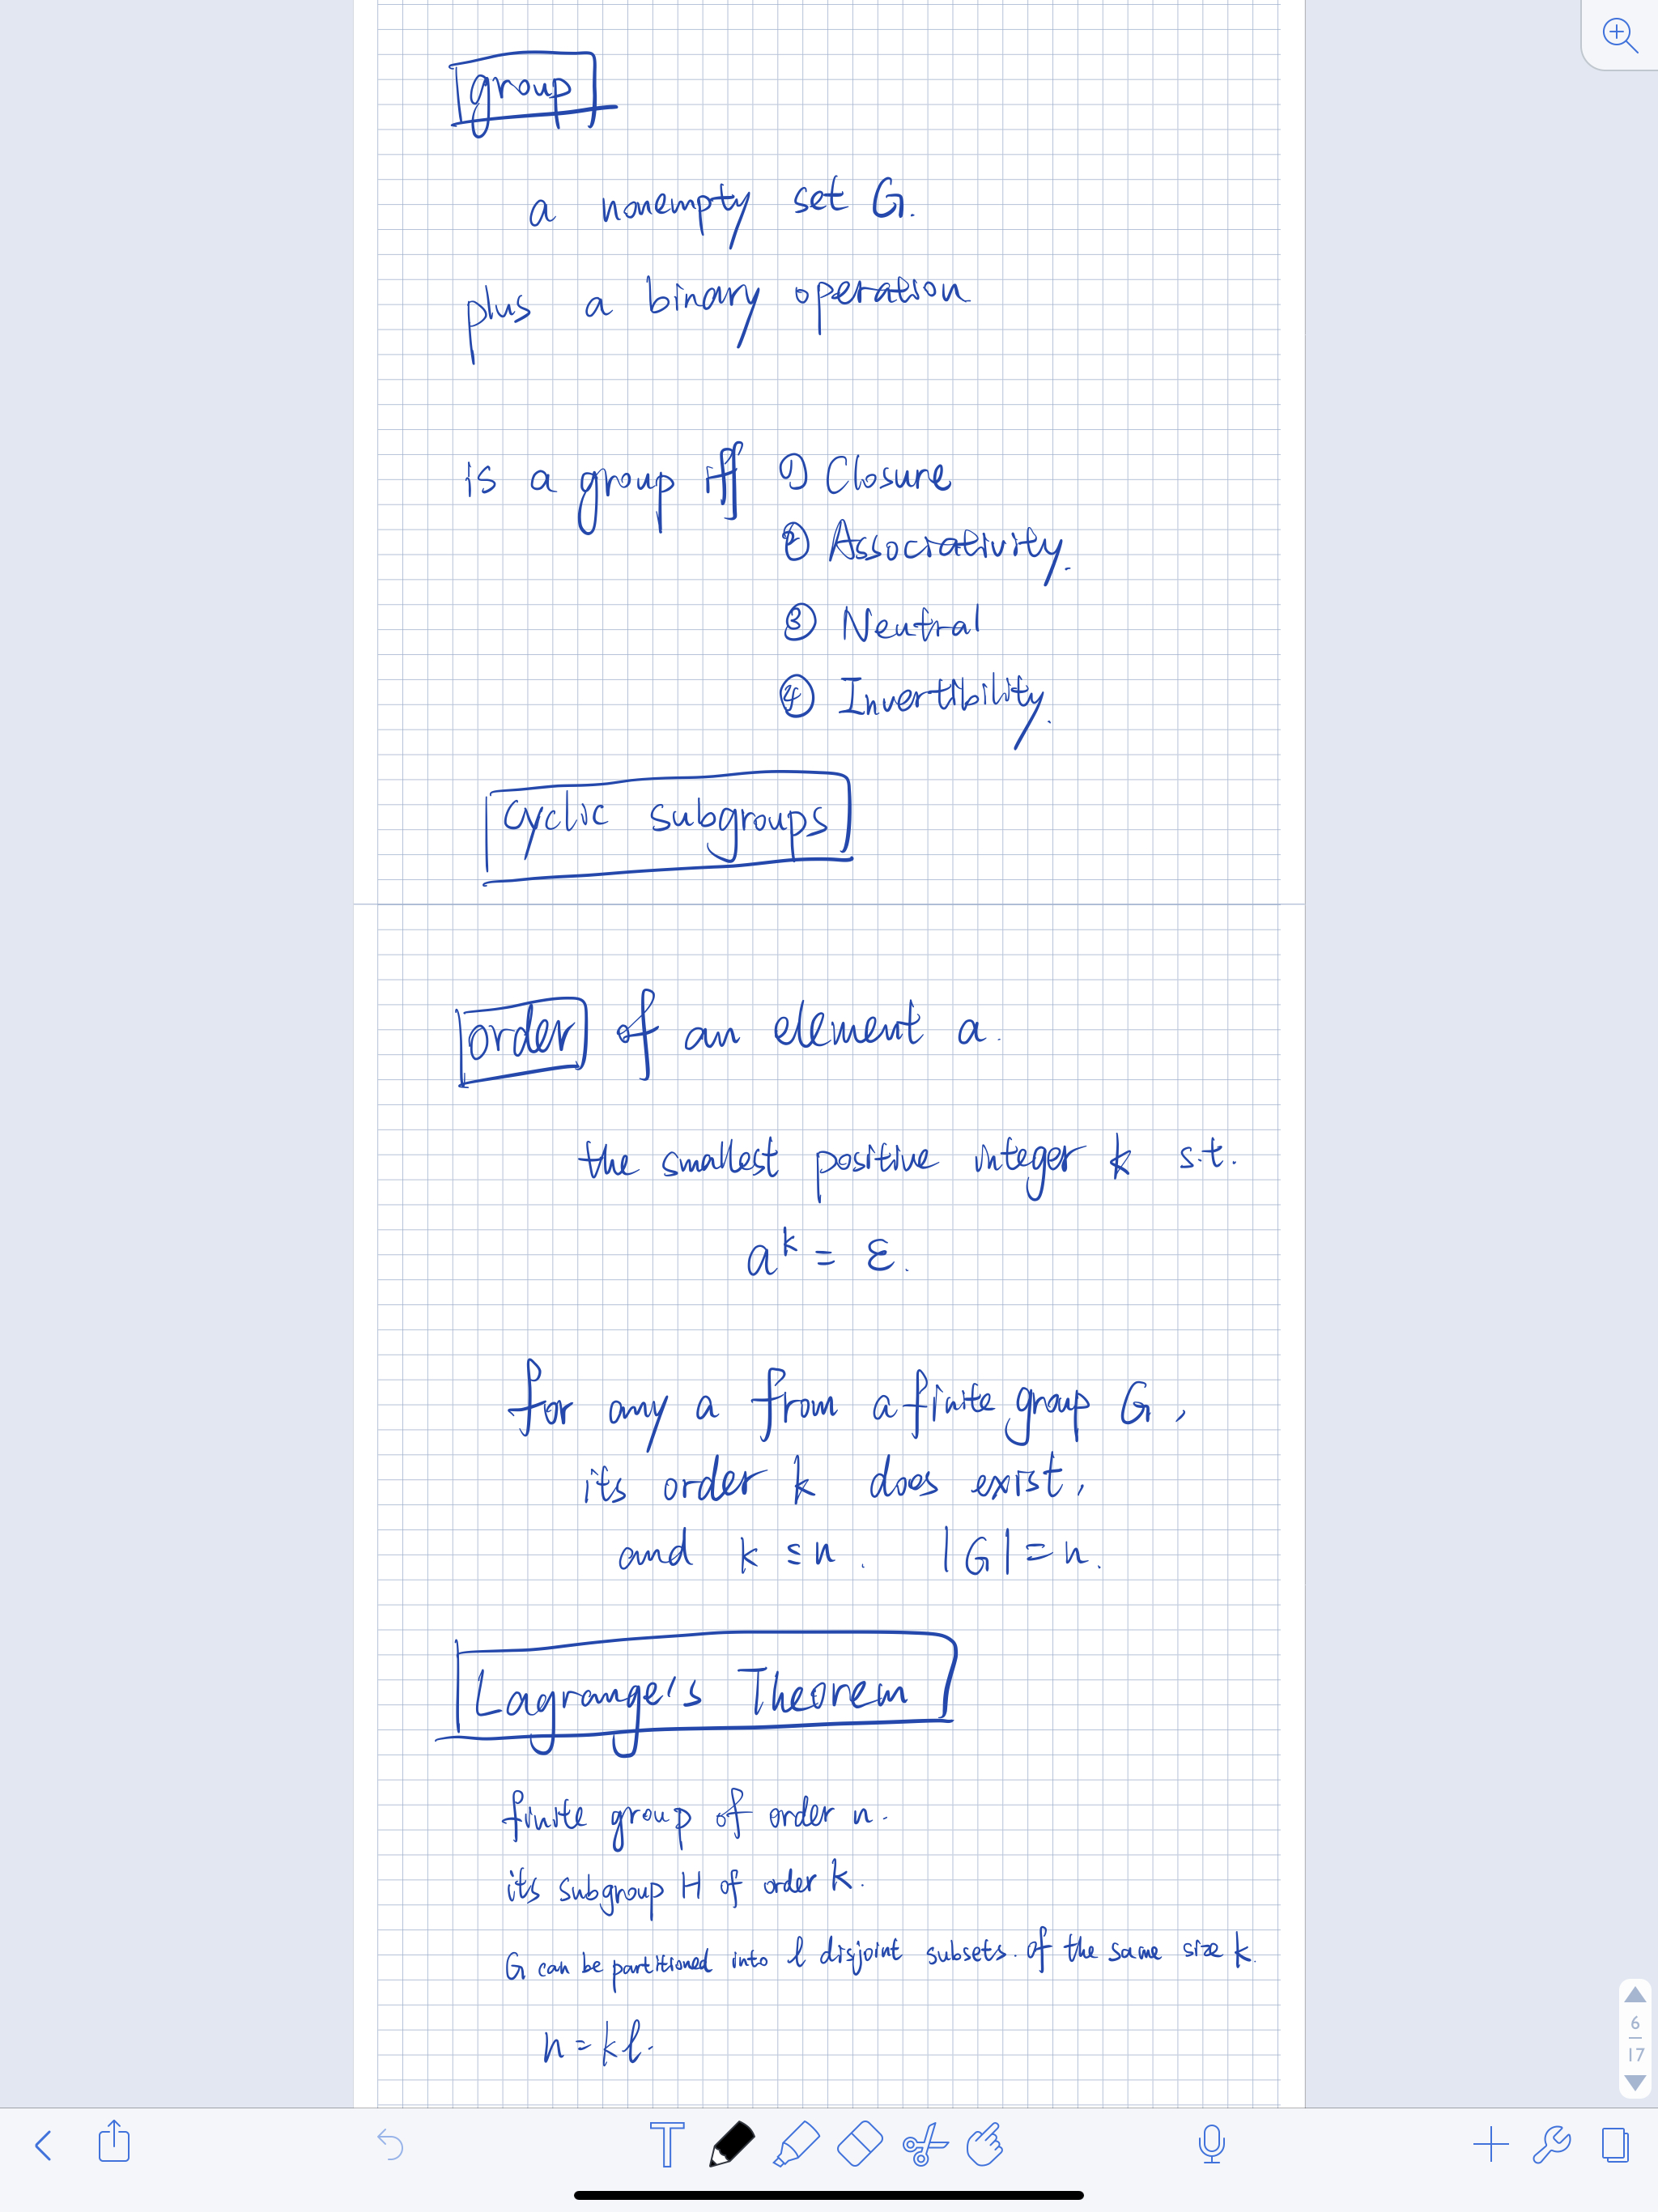 group
a nonempty set G.
plus a binary operation
is a group iff ① Closure
② Associativity.
③ Neutral
④ Invertibility.
cyclic subgroups
order of an element a.
the smallest positive integer k s.t.
aᵏ = ε.
for any a from a finite group G,
its order k does exist,
and k ≤ n. |G| = n.
Lagrange's Theorem
finite group of order n.
its subgroup H of order k.
G can be partitioned into l disjoint subsets. of the same size k.
n = kl.
6
17
T